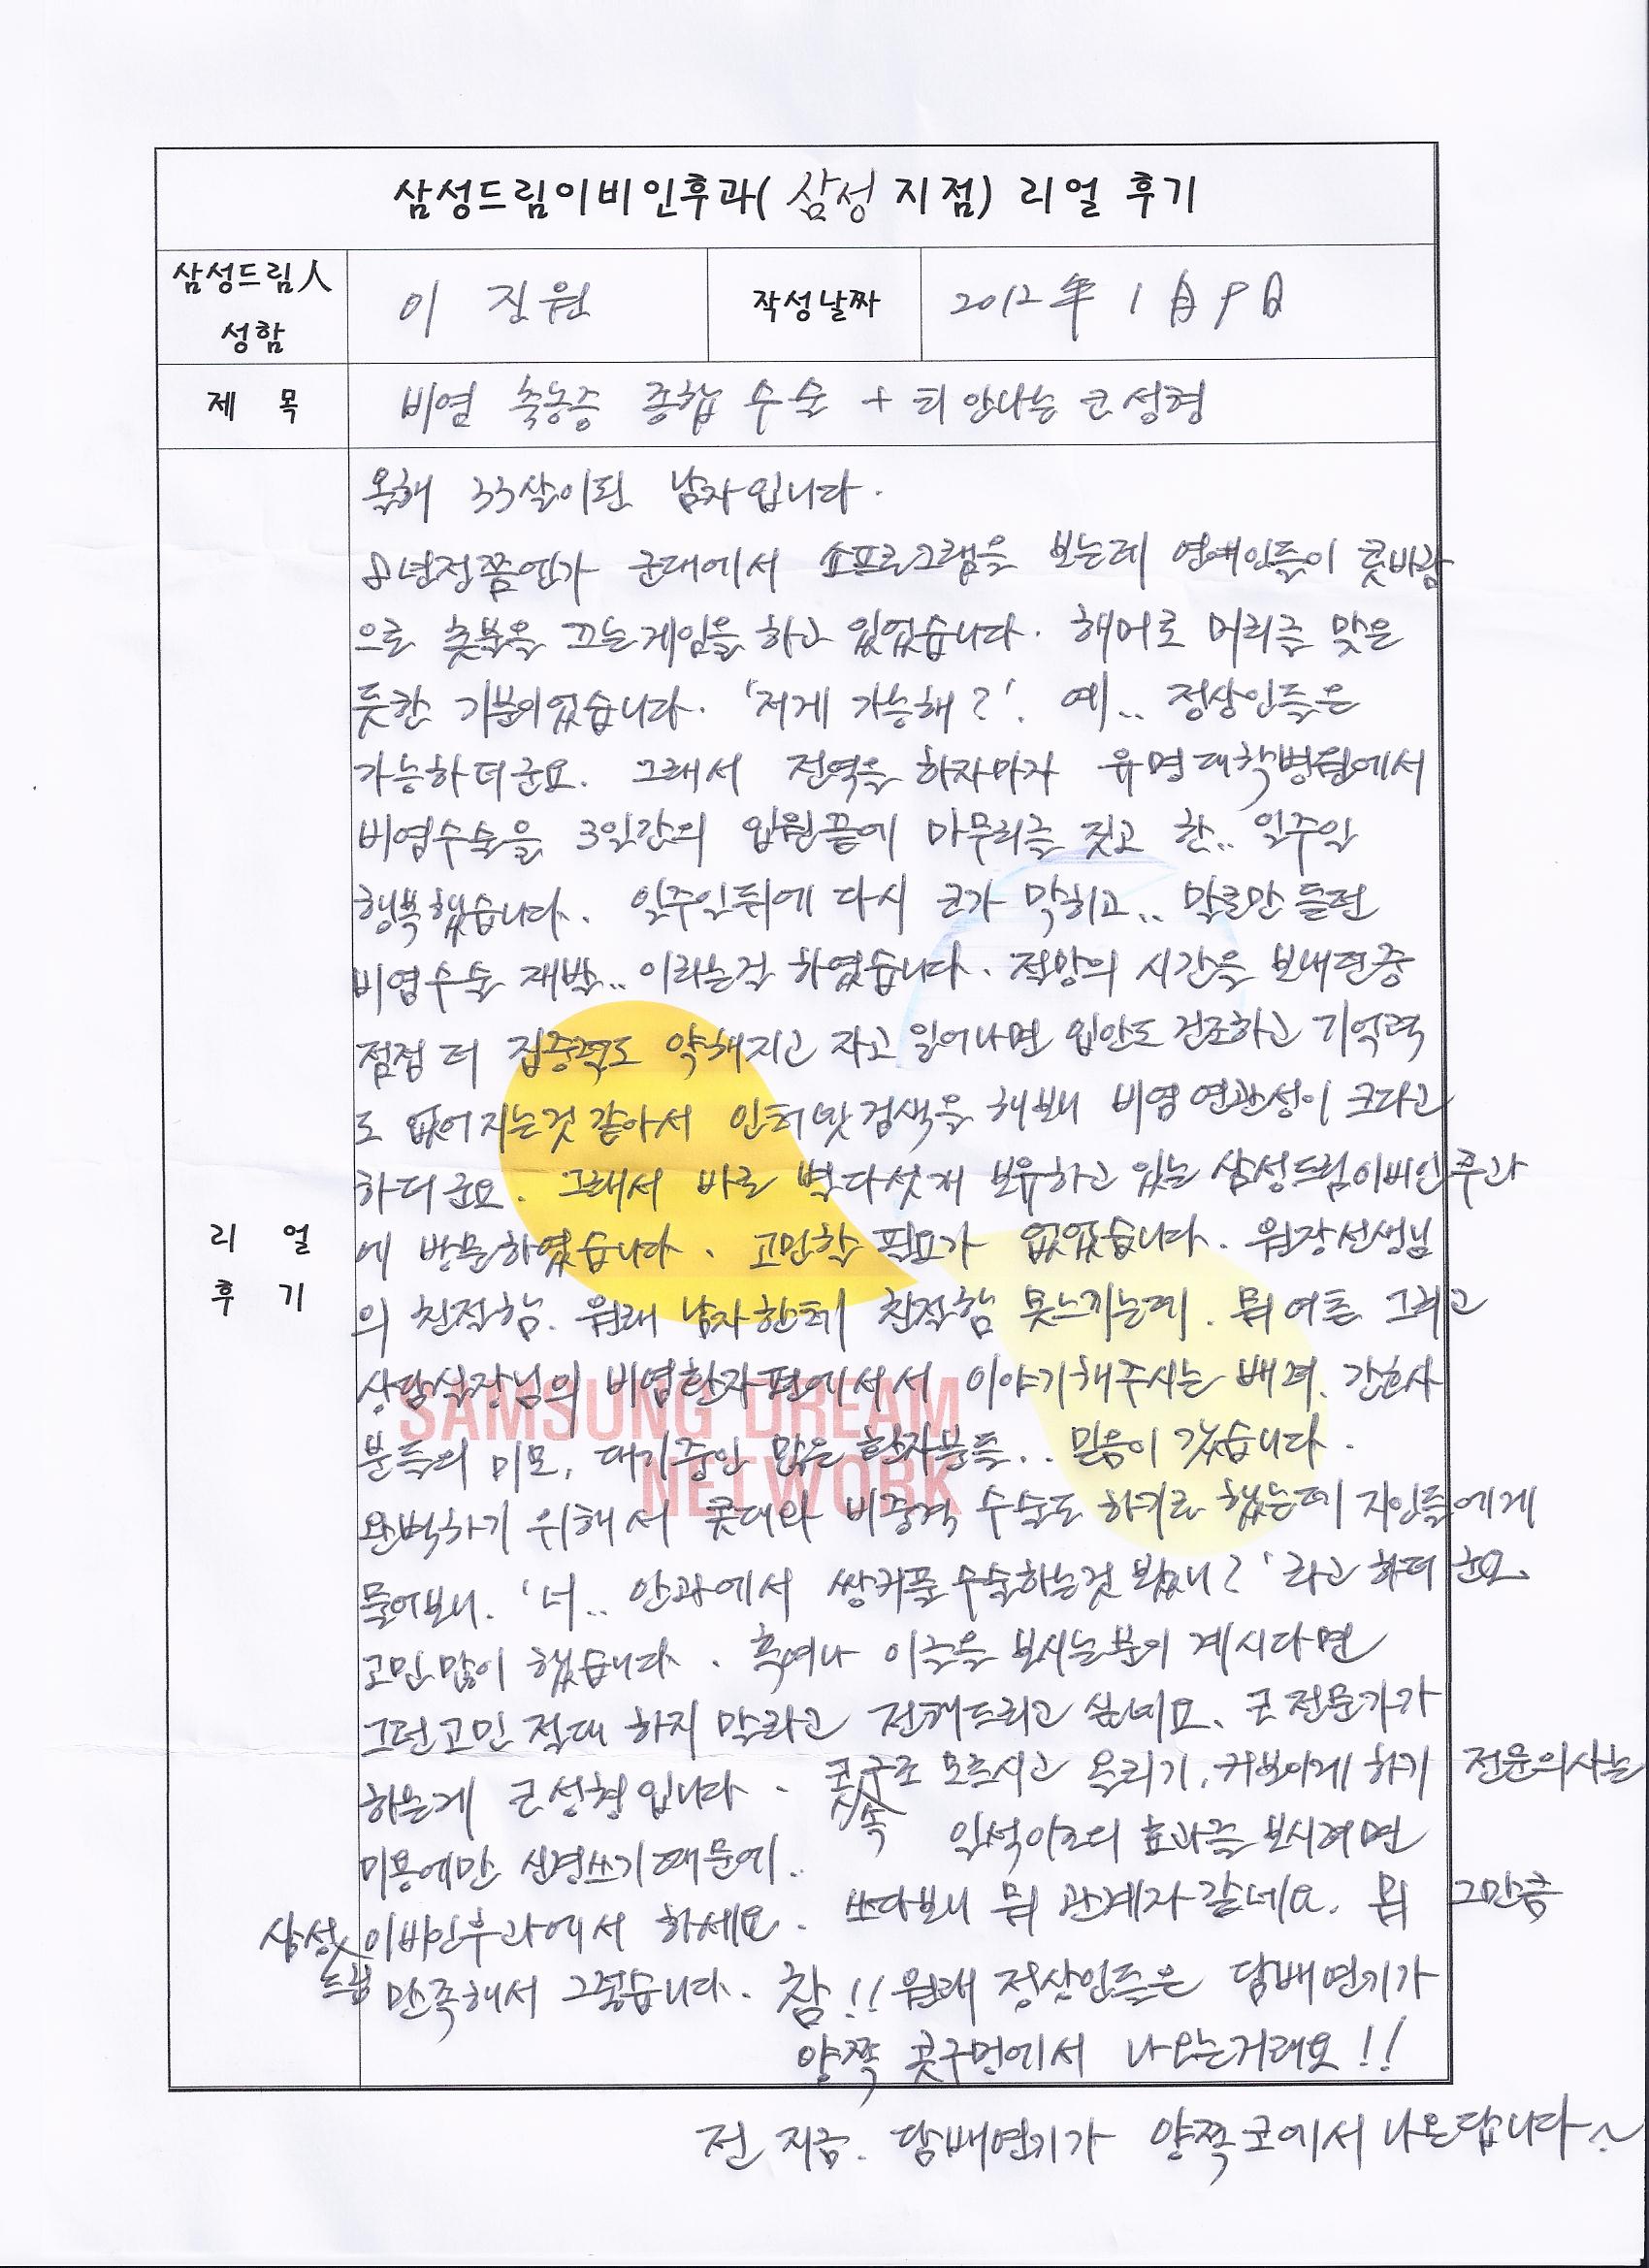 삼성드림이비인후과( 삼성 지점) 리얼 후기
삼성드림人 성함
이 진원
작성날짜
2012年 1月 9日
제 목
비염 축농증 종합 수술 + 티 안나는 코 성형
리 얼 후 기
올해 33살이된 남자입니다.
8년정쯤인가 군대에서 쇼프로그램을 보는데 연예인들이 콧바람
으로 촛불을 끄는게임을 하고 있었습니다. 해머로 머리를 맞은
듯한 기분이었습니다. '저게 가능해?'. 예.. 정상인들은
가능하더군요. 그래서 전역을 하자마자 유명대학병원에서
비염수술을 3일간의 입원끝에 마무리를 짓고 한.. 일주일
행복했습니다. 일주일뒤에 다시 코가 막히고.. 말로만 듣던
비염수술 재발.. 이라는걸 하였습니다. 절망의 시간을 보내던중
점점 더 집중력도 약해지고 자고 일어나면 입안도 건조하고 기억력
도 없어지는것 같아서 인터넷검색을 해보니 비염 연관성이 크다고
하더군요. 그래서 바로 별다섯개 보유하고 있는 삼성드림이비인후과
에 방문하였습니다. 고민할 필요가 없었습니다. 원장선생님
의 친절함. 원래 남자한테 친절함 못느끼는데. 뭐 여튼 그리고
상담실장님의 비염환자편에서서 이야기해주시는 배려. 간호사
분들의 미모, 대기중인 많은 환자분들.. 믿음이 갔습니다.
완벽하기 위해서 콧대와 비중격 수술도 하기로 했는데 지인들에게
물어보니. '너.. 안과에서 쌍커풀수술하는것 봤니?' 라고 하더군요.
고민많이 했습니다. 혹여나 이글을 보시는분이 계시다면
그런고민 절대 하지 말라고 전해드리고 싶네요. 코 전문가가
하는게 코성형입니다. 콧속구조 모르시고 올리기, 커보이게 하기 전문의사는
미용에만 신경쓰기때문에.. 일석이조의 효과를 보시려면
삼성드림이비인후과에서 하세요. 쓰다보니 뭐 관계자 같네요. 뭐 그만큼
만족해서 그렇습니다. 참!! 원래 정상인들은 담배연기가
양쪽 콧구멍에서 나오는거래요!!
전 지금. 담배연기가 양쪽코에서 나온답니다~
SAMSUNG DREAM
NETWORK